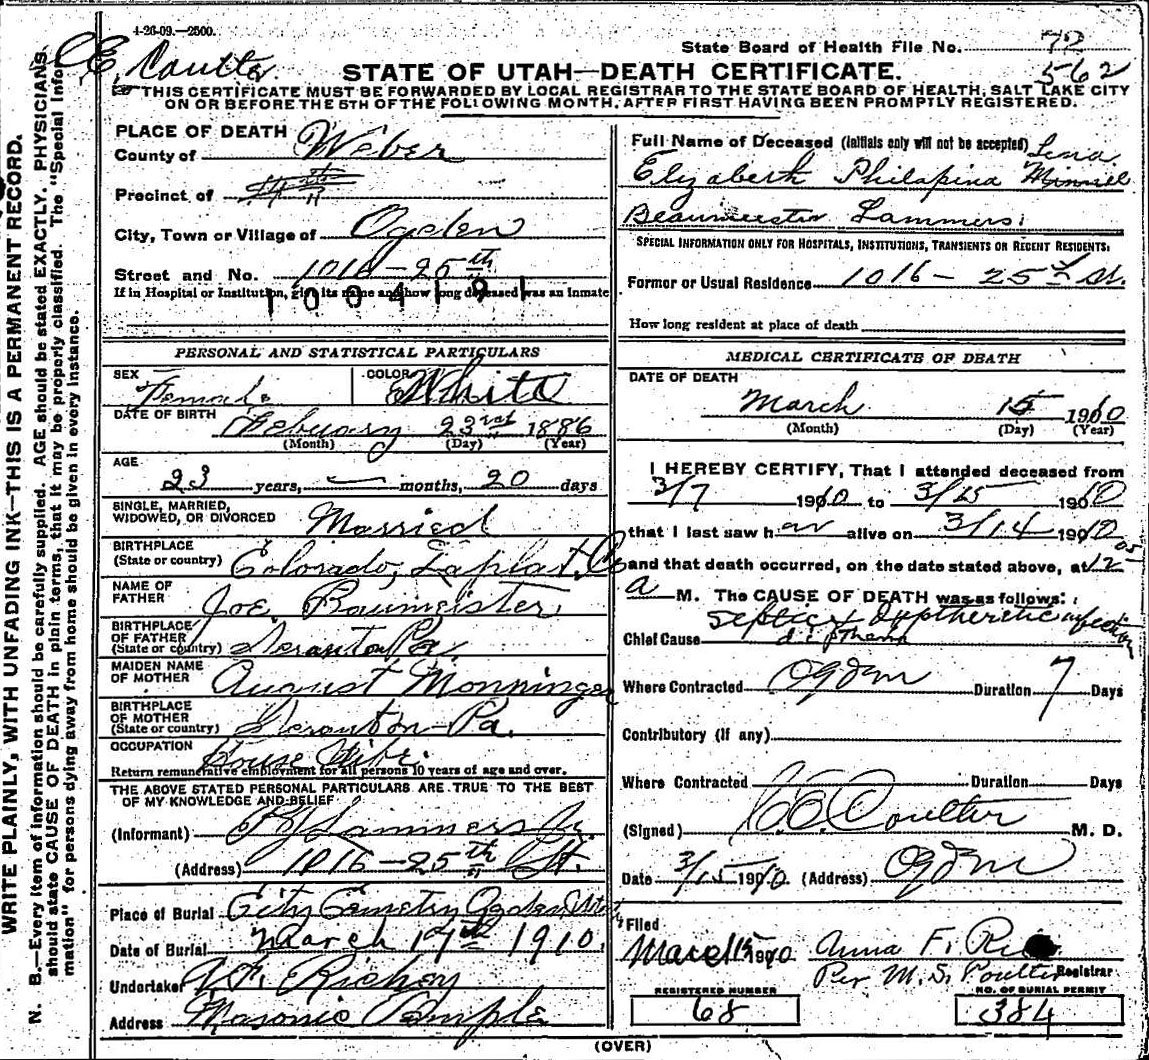 4-26-09.—2500.
C E. Coulter
State Board of Health File No. 72
562
STATE OF UTAH—DEATH CERTIFICATE.
THIS CERTIFICATE MUST BE FORWARDED BY LOCAL REGISTRAR TO THE STATE BOARD OF HEALTH, SALT LAKE CITY
ON OR BEFORE THE 5TH OF THE FOLLOWING MONTH, AFTER FIRST HAVING BEEN PROMPTLY REGISTERED.
WRITE PLAINLY, WITH UNFADING INK—THIS IS A PERMANENT RECORD.
N. B.—Every item of information should be carefully supplied. AGE should be stated EXACTLY. PHYSICIANS
should state CAUSE OF DEATH in plain terms, that it may be properly classified. The "Special Infor-
mation" for persons dying away from home should be given in every instance.
PLACE OF DEATH
County of Weber
Precinct of
City, Town or Village of Ogden
Street and No. 1016—25th
If in Hospital or Institution, give its name and how long deceased was an inmate
1004191
PERSONAL AND STATISTICAL PARTICULARS
SEX Female COLOR White
DATE OF BIRTH
Febuary 23rd 1886
(Month) (Day) (Year)
AGE
23 years, — months, 20 days
SINGLE, MARRIED,
WIDOWED, OR DIVORCED Married
BIRTHPLACE
(State or country) Colorado, Laplat. Co
NAME OF
FATHER Joe Baumeister
BIRTHPLACE
OF FATHER
(State or country) Scranton Pa.
MAIDEN NAME
OF MOTHER August Monninger
BIRTHPLACE
OF MOTHER
(State or country) Scranton—Pa.
OCCUPATION House Wife.
Return remunerative employment for all persons 10 years of age and over.
THE ABOVE STATED PERSONAL PARTICULARS ARE TRUE TO THE BEST
OF MY KNOWLEDGE AND BELIEF
(Informant) Lammers Jr.
(Address) 1016—25th St.
Place of Burial City Cemetry Ogden Utah
Date of Burial March 17th 1910.
Undertaker Richey
Address Masonic Temple
Full Name of Deceased (Initials only will not be accepted) Lena
Elizabeth Philapina Minniel
Beaumeister Lammers.
SPECIAL INFORMATION ONLY FOR HOSPITALS, INSTITUTIONS, TRANSIENTS OR RECENT RESIDENTS:
Former or Usual Residence 1016— 25th St.
How long resident at place of death
MEDICAL CERTIFICATE OF DEATH
DATE OF DEATH
March 15 1910
(Month) (Day) (Year)
I HEREBY CERTIFY, That I attended deceased from
3/7 1910 to 3/15 1910
that I last saw her alive on 3/14 1910
and that death occurred, on the date stated above, at 12 05
a M. The CAUSE OF DEATH was as follows:
Septic & Diptheritic infection
Chief Cause diptheria
Where Contracted Ogden Duration 7 Days
Contributory (if any)
Where Contracted Duration Days
(Signed) C E. Coulter M. D.
Date 3/15 1910. (Address) Ogden
Filed
March 15 1910 Anna F.
Per M. S. Poulter Registrar
REGISTERED NUMBER NO. OF BURIAL PERMIT
68 384
(OVER)